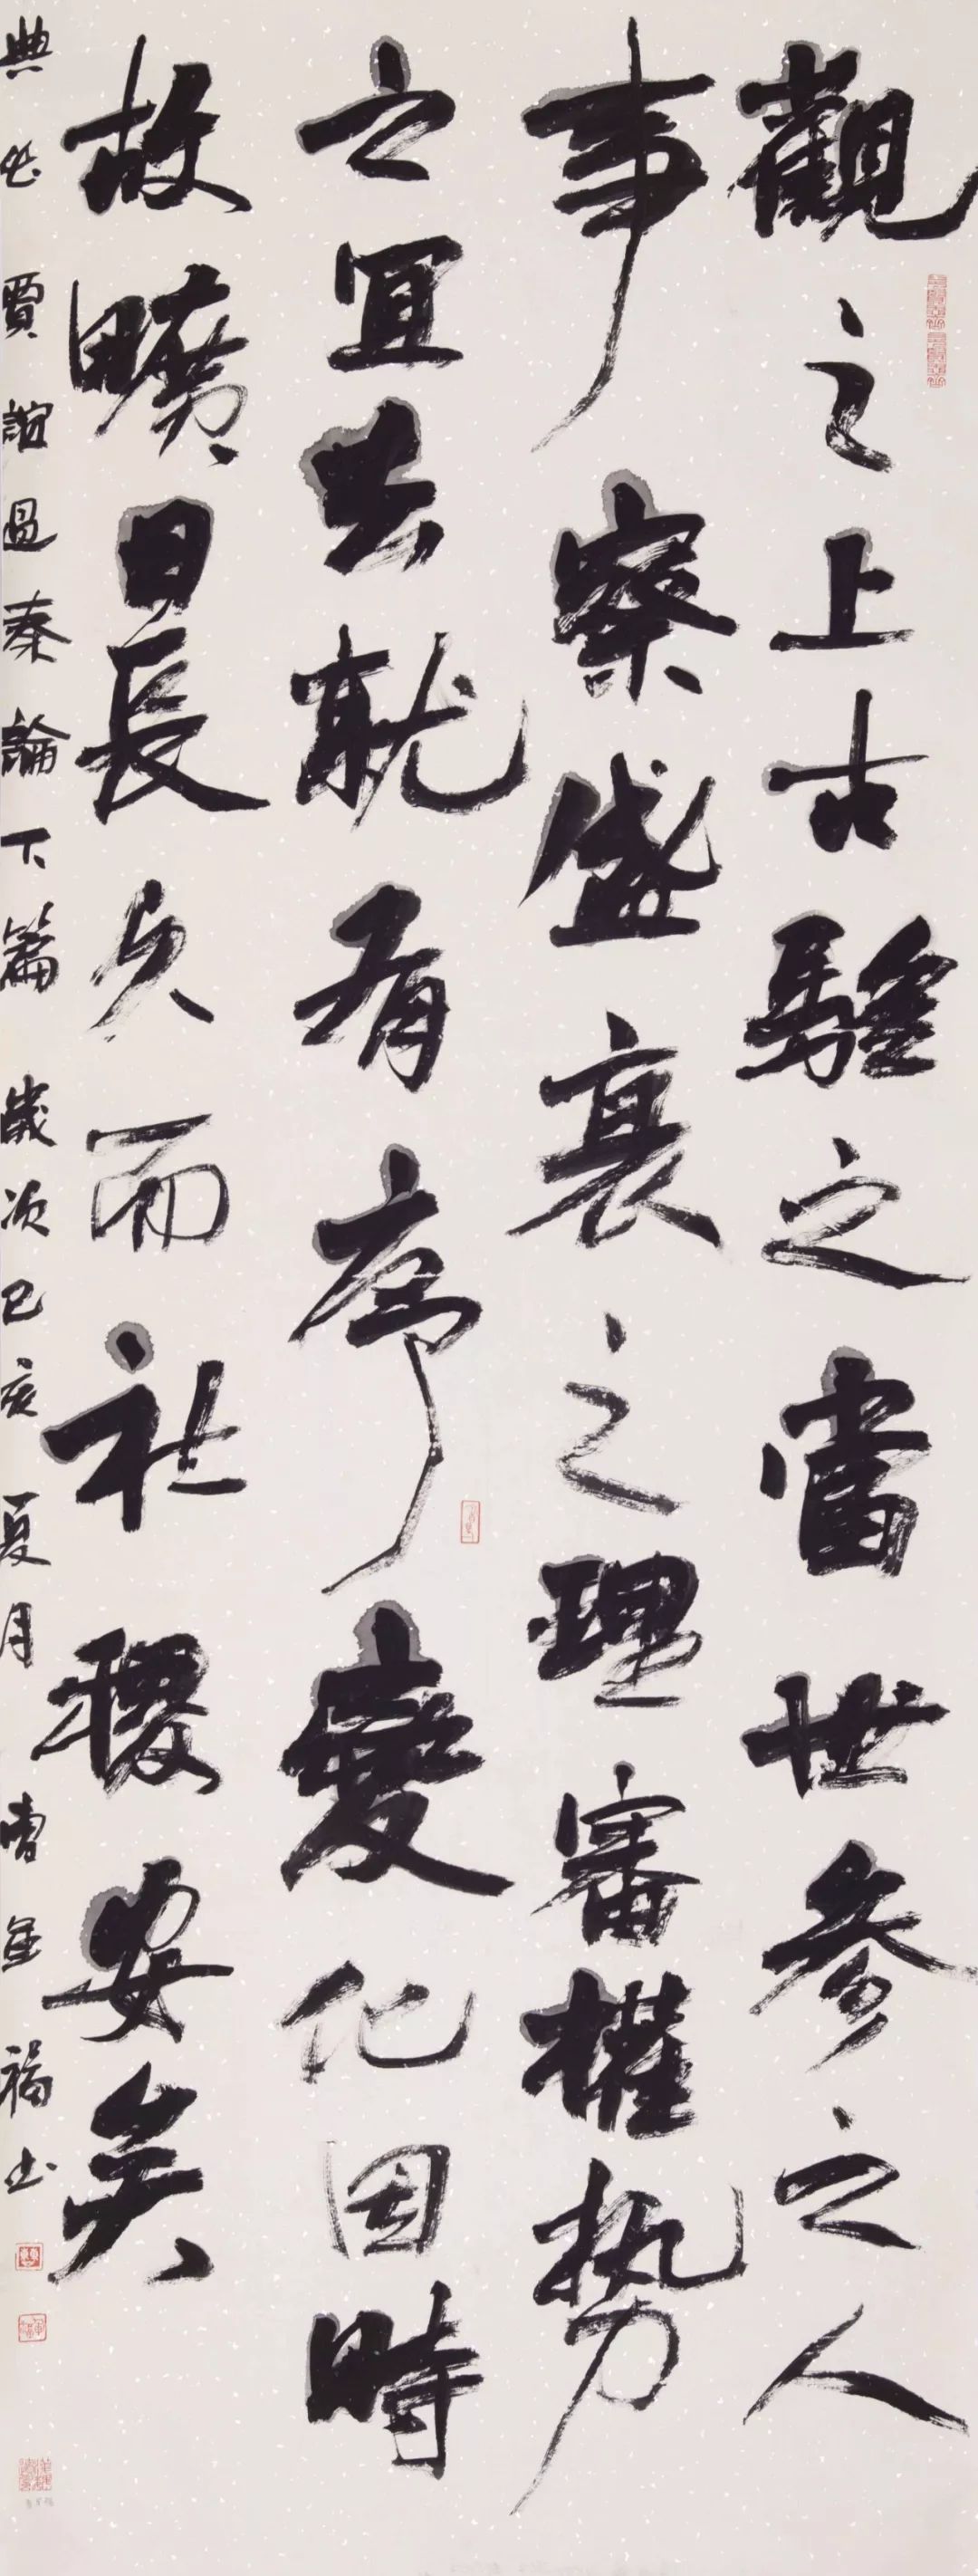 觀之上古驗之當世參之人
事察盛衰之理審權勢
之宜去就有序變化因時
故曠日長久而社稷安矣
典出賈誼過秦論下篇歲次己亥夏月曹金福书